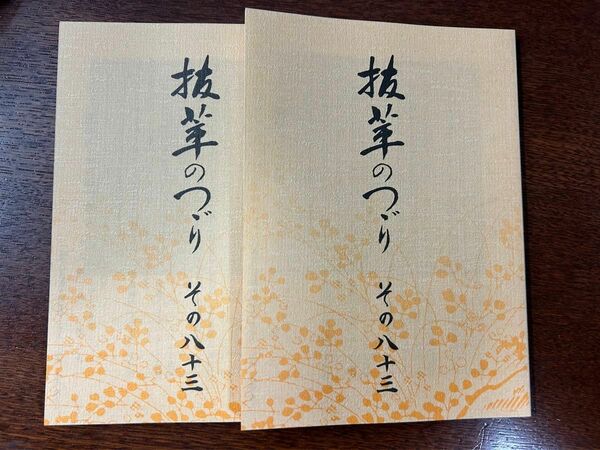 抜萃のつゞり その八十三
抜萃のつゞり その八十三